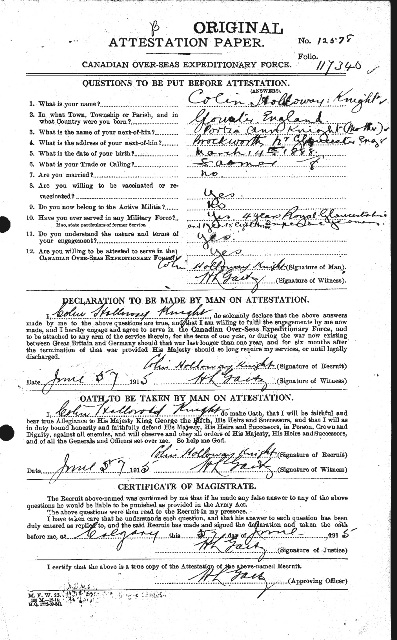 ORIGINAL
ATTESTATION PAPER.
No.
Folio.
CANADIAN OVER-SEAS EXPEDITIONARY FORCE.
117340
QUESTIONS TO BE PUT BEFORE ATTESTATION.
(ANSWERS)
1. What is your name? Colin Holloway Knight
2. In what Town, Township or Parish, and in
what Country were you born? England
3. What is the name of your next-of-kin? Ann Knight (Mother)
4. What is the address of your next-of-kin? Brockworth, Nr Gloucester Eng
5. What is the date of your birth? March 14th
6. What is your Trade or Calling?
7. Are you married? No
8. Are you willing to be vaccinated or re-
vaccinated? Yes
9. Do you now belong to the Active Militia? No
10. Have you ever served in any Military Force? Yes. 4 years Royal
If so, state particulars of former Service
11. Do you understand the nature and terms of
your engagement? Yes
12. Are you willing to be attested to serve in the
CANADIAN OVER-SEAS EXPEDITIONARY FORCE? Yes
Colin Holloway Knight (Signature of Man).
(Signature of Witness).
DECLARATION TO BE MADE BY MAN ON ATTESTATION.
I, Colin Holloway Knight, do solemnly declare that the above answers
made by me to the above questions are true, and that I am willing to fulfil the engagements by me now
made, and I hereby engage and agree to serve in the Canadian Over-Seas Expeditionary Force, and
to be attached to any arm of the service therein, for the term of one year, or during the war now existing
between Great Britain and Germany should that war last longer than one year, and for six months after
the termination of that war provided His Majesty should so long require my services, or until legally
discharged.
Colin Holloway Knight (Signature of Recruit)
Date June 5 1915 (Signature of Witness)
OATH TO BE TAKEN BY MAN ON ATTESTATION.
I, Colin Holloway Knight, do make Oath, that I will be faithful and
bear true Allegiance to His Majesty King George the Fifth, His Heirs and Successors, and that I will as
in duty bound honestly and faithfully defend His Majesty, His Heirs and Successors, in Person, Crown and
Dignity, against all enemies, and will observe and obey all orders of His Majesty, His Heirs and Successors,
and of all the Generals and Officers set over me. So help me God.
Colin Holloway Knight (Signature of Recruit)
Date June 5 1915 (Signature of Witness)
CERTIFICATE OF MAGISTRATE.
The Recruit above-named was cautioned by me that if he made any false answer to any of the above
questions he would be liable to be punished as provided in the Army Act.
The above questions were then read to the Recruit in my presence.
I have taken care that he understands each question, and that his answer to each question has been
duly entered as replied to, and the said Recruit has made and signed the declaration and taken the oath
before me, at Calgary this 5 day of June 1915
(Signature of Justice)
I certify that the above is a true copy of the Attestation of the above-named Recruit.
(Approving Officer)
M. F. W. 23.